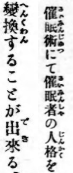 催眠術にて催眠者の人格を
變換することが出來る。